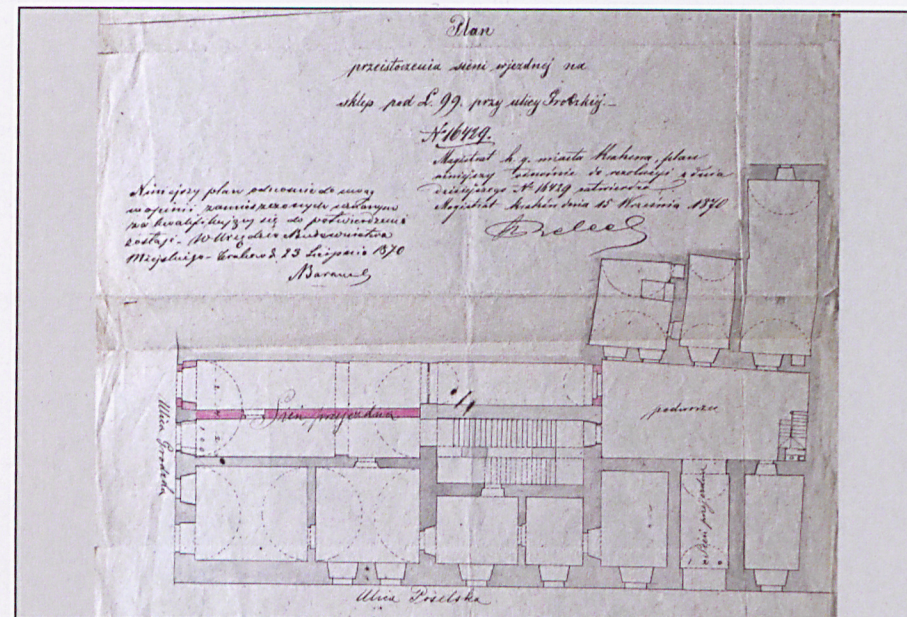 Plan
przeistoczenia sieni wjezdnej na
sklep pod L. 99. przy ulicy Grodzkiej.
N 16429.
Magistrat k. g. miasta Krakowa, plan
niniejszy stosownie do rezolucyi z dnia
dzisiejszego N 16429 zatwierdza
Magistrat Kraków dnia 15 Września 1870
Niniejszy plan odnośnie do uwag
w opinii zamieszczonych uznanym
za kwalifikujący się do potwierdzenia
zostaje. W Urzędzie Budownictwa
Miejskiego. Kraków d. 23 Sierpnia 1870
Sień przejezdna
podwórze
Ulica Grodzka
Sień przejezdna
Ulica Poselska